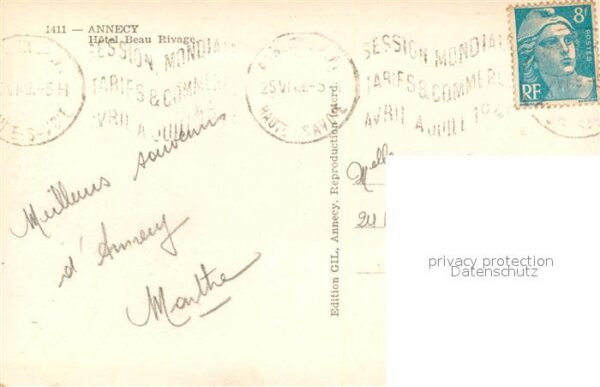 1411 — ANNECY
Hôtel Beau Rivage
SESSION MONDIALE
TARIFS & COMMERCE
AVRIL A JUILLET
HAUTE-SAVOIE
SESSION MONDIALE
TARIFS & COMMERCE
AVRIL A JUILLET 194
8F
POSTES
RF
Meilleurs souvenirs
d'Annecy
Marthe
Edition GIL, Annecy. Reproduction interd.
Melle
privacy protection
Datenschutz